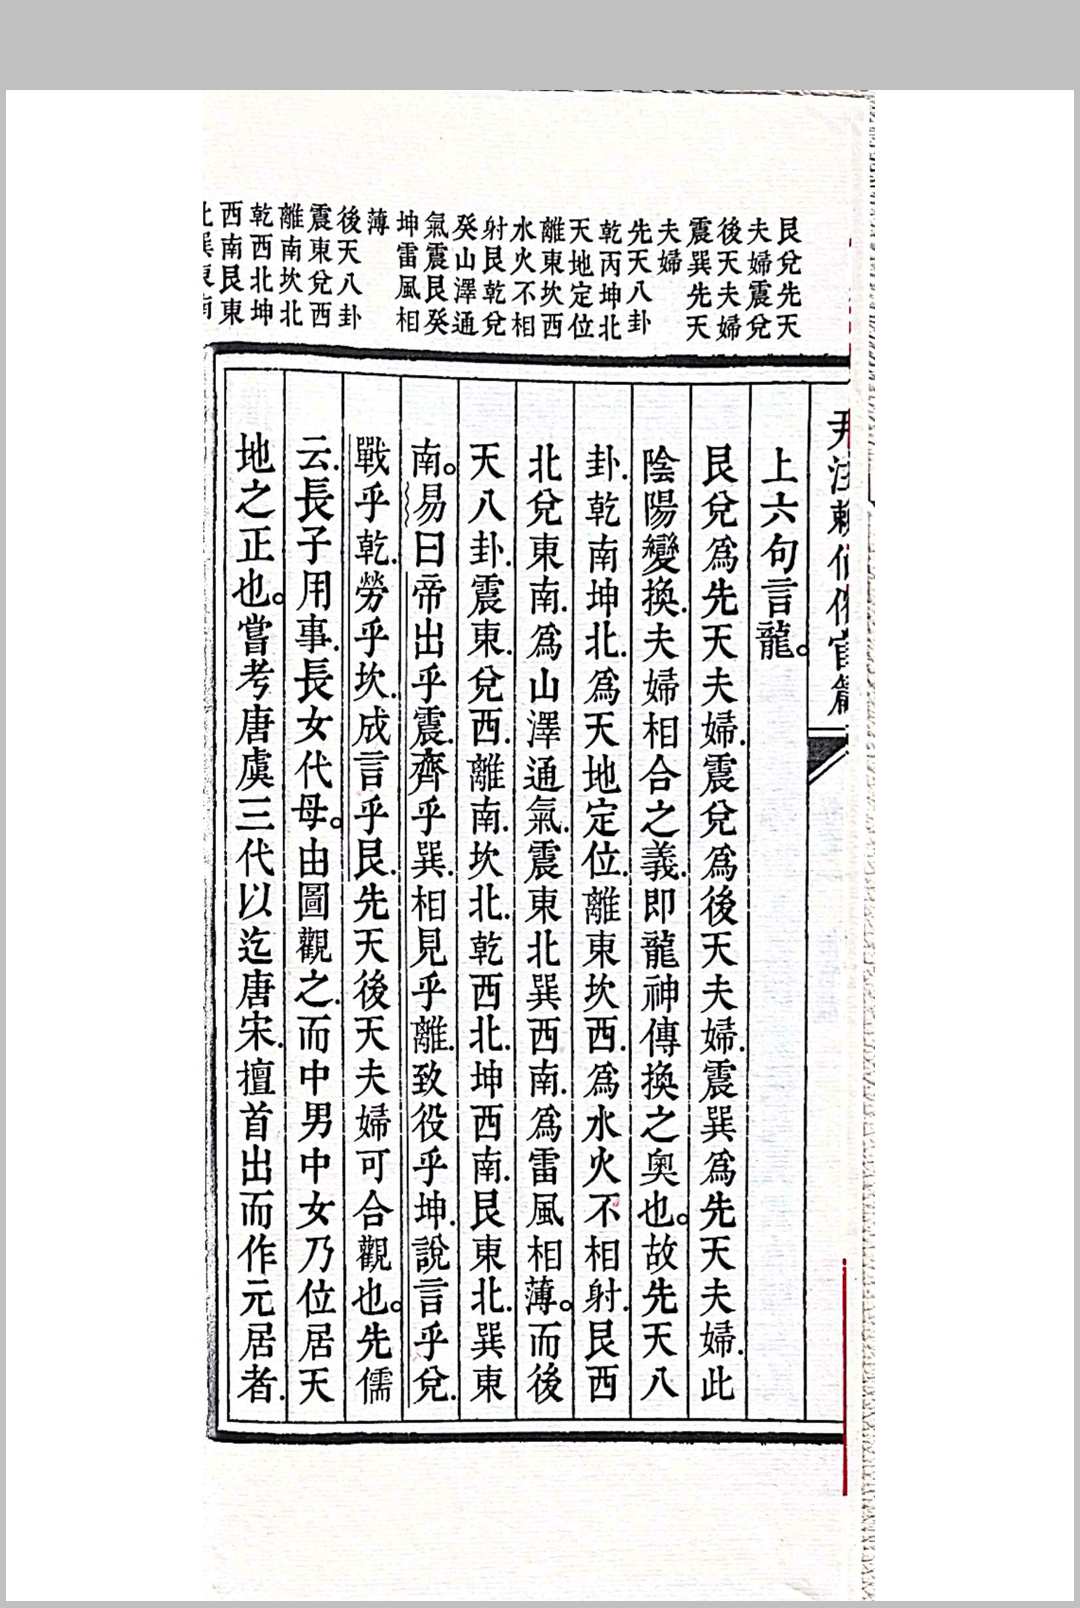 艮兌先天
夫婦震兌
後天夫婦
震巽先天
夫婦
先天八卦
乾丙坤北
天地定位
離東坎西
水火不相
射艮乾兌
癸山澤通
氣震艮癸
坤雷風相
薄
後天八卦
震東兌西
離南坎北
乾西北坤
西南艮東
北巽東南
尹注賴仙催官篇
上六句言龍。
艮兌爲先天夫婦.震兌爲後天夫婦.震巽爲先天夫婦.此
陰陽變換.夫婦相合之義.即龍神傳換之奧也。故先天八
卦.乾南坤北.爲天地定位.離東坎西.爲水火不相射.艮西
北兌東南.爲山澤通氣.震東北巽西南.爲雷風相薄。而後
天八卦.震東.兌西.離南.坎北.乾西北.坤西南.艮東北.巽東
南。易曰帝出乎震.齊乎巽.相見乎離.致役乎坤.說言乎兌.
戰乎乾.勞乎坎.成言乎艮.先天後天夫婦可合觀也。先儒
云.長子用事.長女代母。由圖觀之.而中男中女乃位居天
地之正也。嘗考唐虞三代以迄唐宋.擅首出而作元居者.